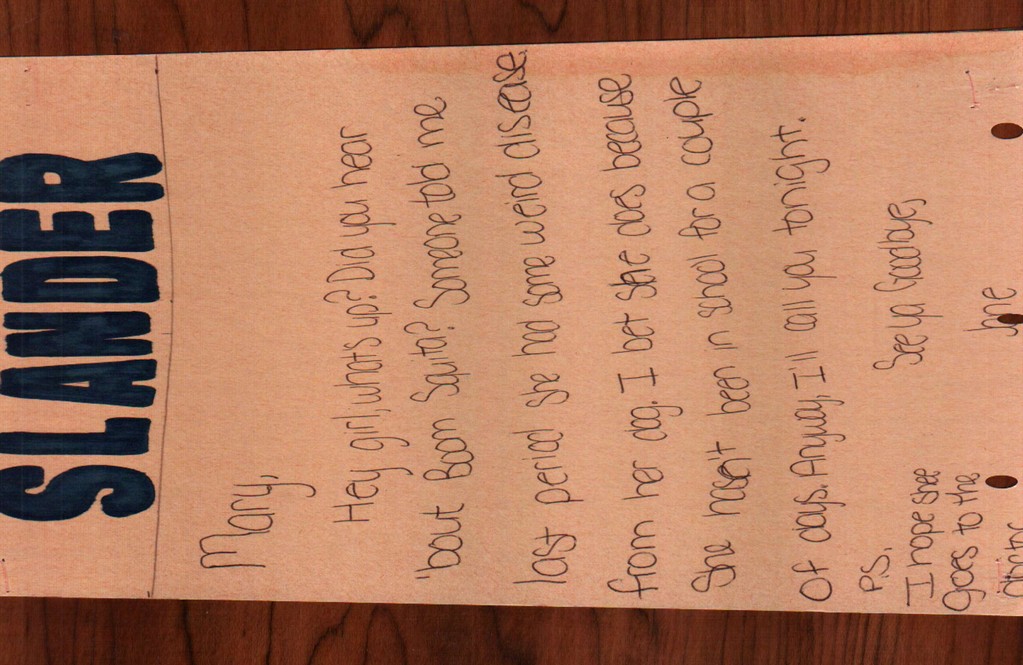 SLANDER
Mary,
Hey girl, what's up? Did you hear
'bout Boon Squita? Someone told me
last period she had some weird disease
from her dog. I bet she does because
She hasn't been in school for a couple
of days. Anyway, I'll call you tonight.
See ya Goodbye,
P.S.
I hope shee
goes to the